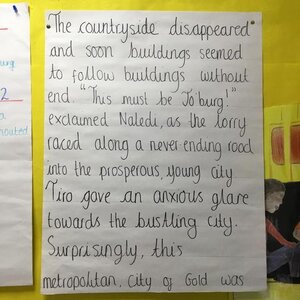 The countryside disappeared
and soon buildings seemed
to follow buildings without
end. "This must be Jo'burg!"
exclaimed Naledi, as the lorry
raced along a never ending road
into the prosperous, young city
Tiro gave an anxious glare
towards the bustling city.
Surprisingly, this
metropolitan, City of Gold was
urg
2
a
houted